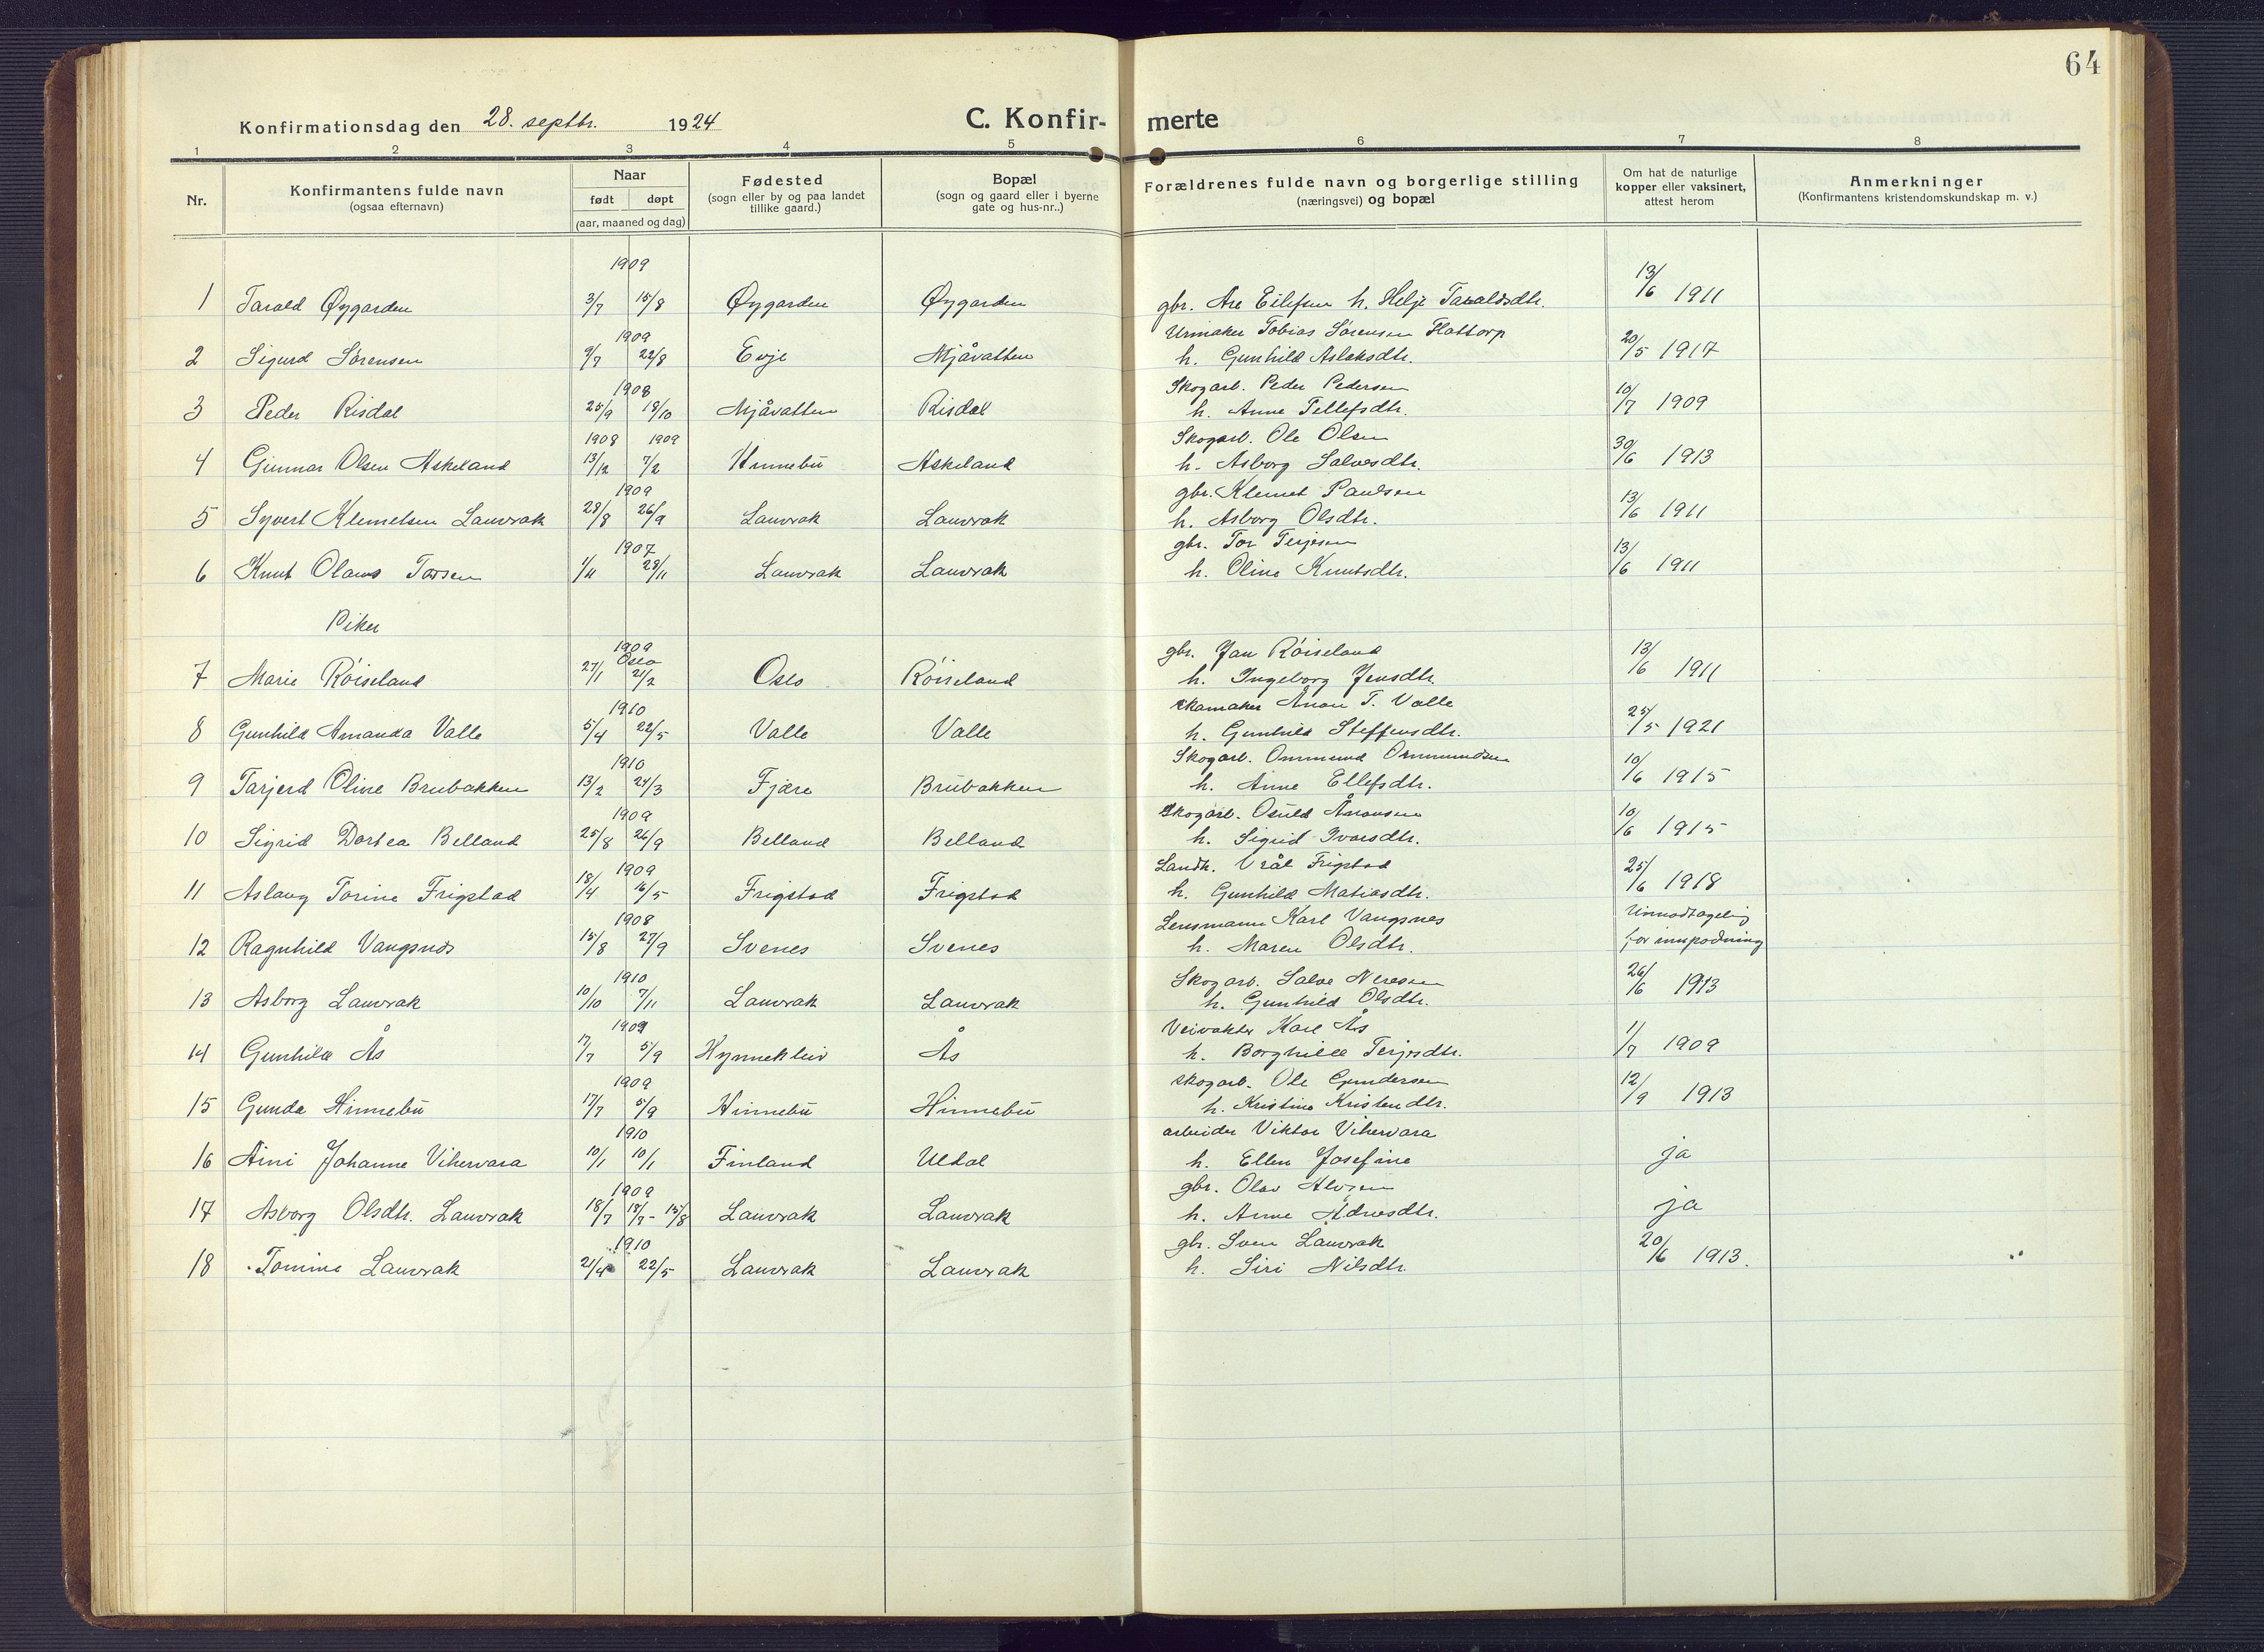 64
Konfirmationsdag den 28. septbr. 1924
C. Konfir- merte
1 2 3 4 5 6 7 8
Nr.
Konfirmantens fulde navn
(ogsaa efternavn)
Naar
født døpt
(aar, maaned og dag)
Fødested
(sogn eller by og paa landet
tillike gaard.)
Bopæl
(sogn og gaard eller i byerne
gate og hus-nr..)
Forældrenes fulde navn og borgerlige stilling
(næringsvei) og bopæl
Om hat de naturlige
kopper eller vaksinert,
attest herom
Anmerkninger
(Konfirmantens kristendomskundskap m. v.)
1909
1 Tarald Øygarden 3/7 15/8 Øygarden Øygarden gbr. Are Eilefsen h. Helje Taraldsdtr. 13/6 1911
1909 Urmaker Tobias Sørensen Flattorp
2 Sigurd Sørensen 9/7 22/8 Evje Mjåvatten h. Gunhild Aslaksdtr. 20/5 1917
1908 Skogarb. Peder Pedersen
3 Peder Risdal 25/9 18/10 Mjåvatten Risdal h. Anne Tellefsdtr. 10/7 1909
1908 1909 Skogarb. Ole Olsen
4 Gunnar Olsen Askeland 13/12 7/2 Hinnebu Askeland h. Asborg Salvesdtr. 30/6 1913
1909 gbr. Klemet Paulsen
5 Syvert Klemetsen Lauvrak 28/8 26/9 Lauvrak Lauvrak h. Asborg Olsdtr. 13/6 1911
1907 gbr. Tor Terjesen
6 Knut Olaus Torsen 1/11 28/11 Lauvrak Lauvrak h. Oline Knutsdtr. 13/6 1911
Piker
1909 gbr. Jan Røiseland
Oslo
7 Marie Røiseland 27/1 21/2 Oslo Røiseland h. Ingeborg Jensdtr. 13/6 1911
1910 skomaker Anon T. Valle
8 Gunhild Amanda Valle 5/4 22/5 Valle Valle h. Gunhild Steffensdtr. 25/5 1921
1910 Skogarb. Ommund Ommundsen
9 Tarjerd Oline Brubakken 13/2 24/3 Fjære Brubakken h. Anne Ellefsdtr. 10/6 1915
1909 Skogarb. Osuld Ånonsen
10 Sigrid Dortea Belland 25/8 26/9 Belland Belland h. Sigrid Ivarsdtr. 10/6 1915
1909 Landh. Vrål Frigstad
11 Aslaug Torine Frigstad 18/4 16/5 Frigstad Frigstad h. Gunhild Matiasdtr. 25/6 1918
1908 Lensmann Karl Vangsnes Uimodtagelig
12 Ragnhild Vangsnes 15/8 27/9 Svenes Svenes h. Maren Olsdtr. for innpodning
1910 Skogarb. Salve Neresen
13 Asborg Lauvrak 10/10 7/11 Lauvrak Lauvrak h. Gunhild Olsdtr. 26/6 1913
1909 Veivokter Karl Ås
14 Gunhild Ås 17/7 5/9 Hynnekleiv Ås h. Borghild Terjesdtr. 1/7 1909
1909 skogarb. Ole Gundersen
15 Gunda Hinnebu 17/7 5/9 Hinnebu Hinnebu h. Kristine Kristendtr. 12/9 1913
1910 arbeider Viktor Vihervara
16 Aini Johanne Vihervara 10/1 10/1 Finland Uldal h. Ellen Josefine ja
1909 gbr. Olav
17 Asborg Olsdtr. Lauvrak 18/7 18/7 - 15/8 Lauvrak Lauvrak h. Anne ja
1910 gbr. Sven Lauvrak
18 Tomine Lauvrak 21/4 22/5 Lauvrak Lauvrak h. Siri Nilsdtr. 20/6 1913.